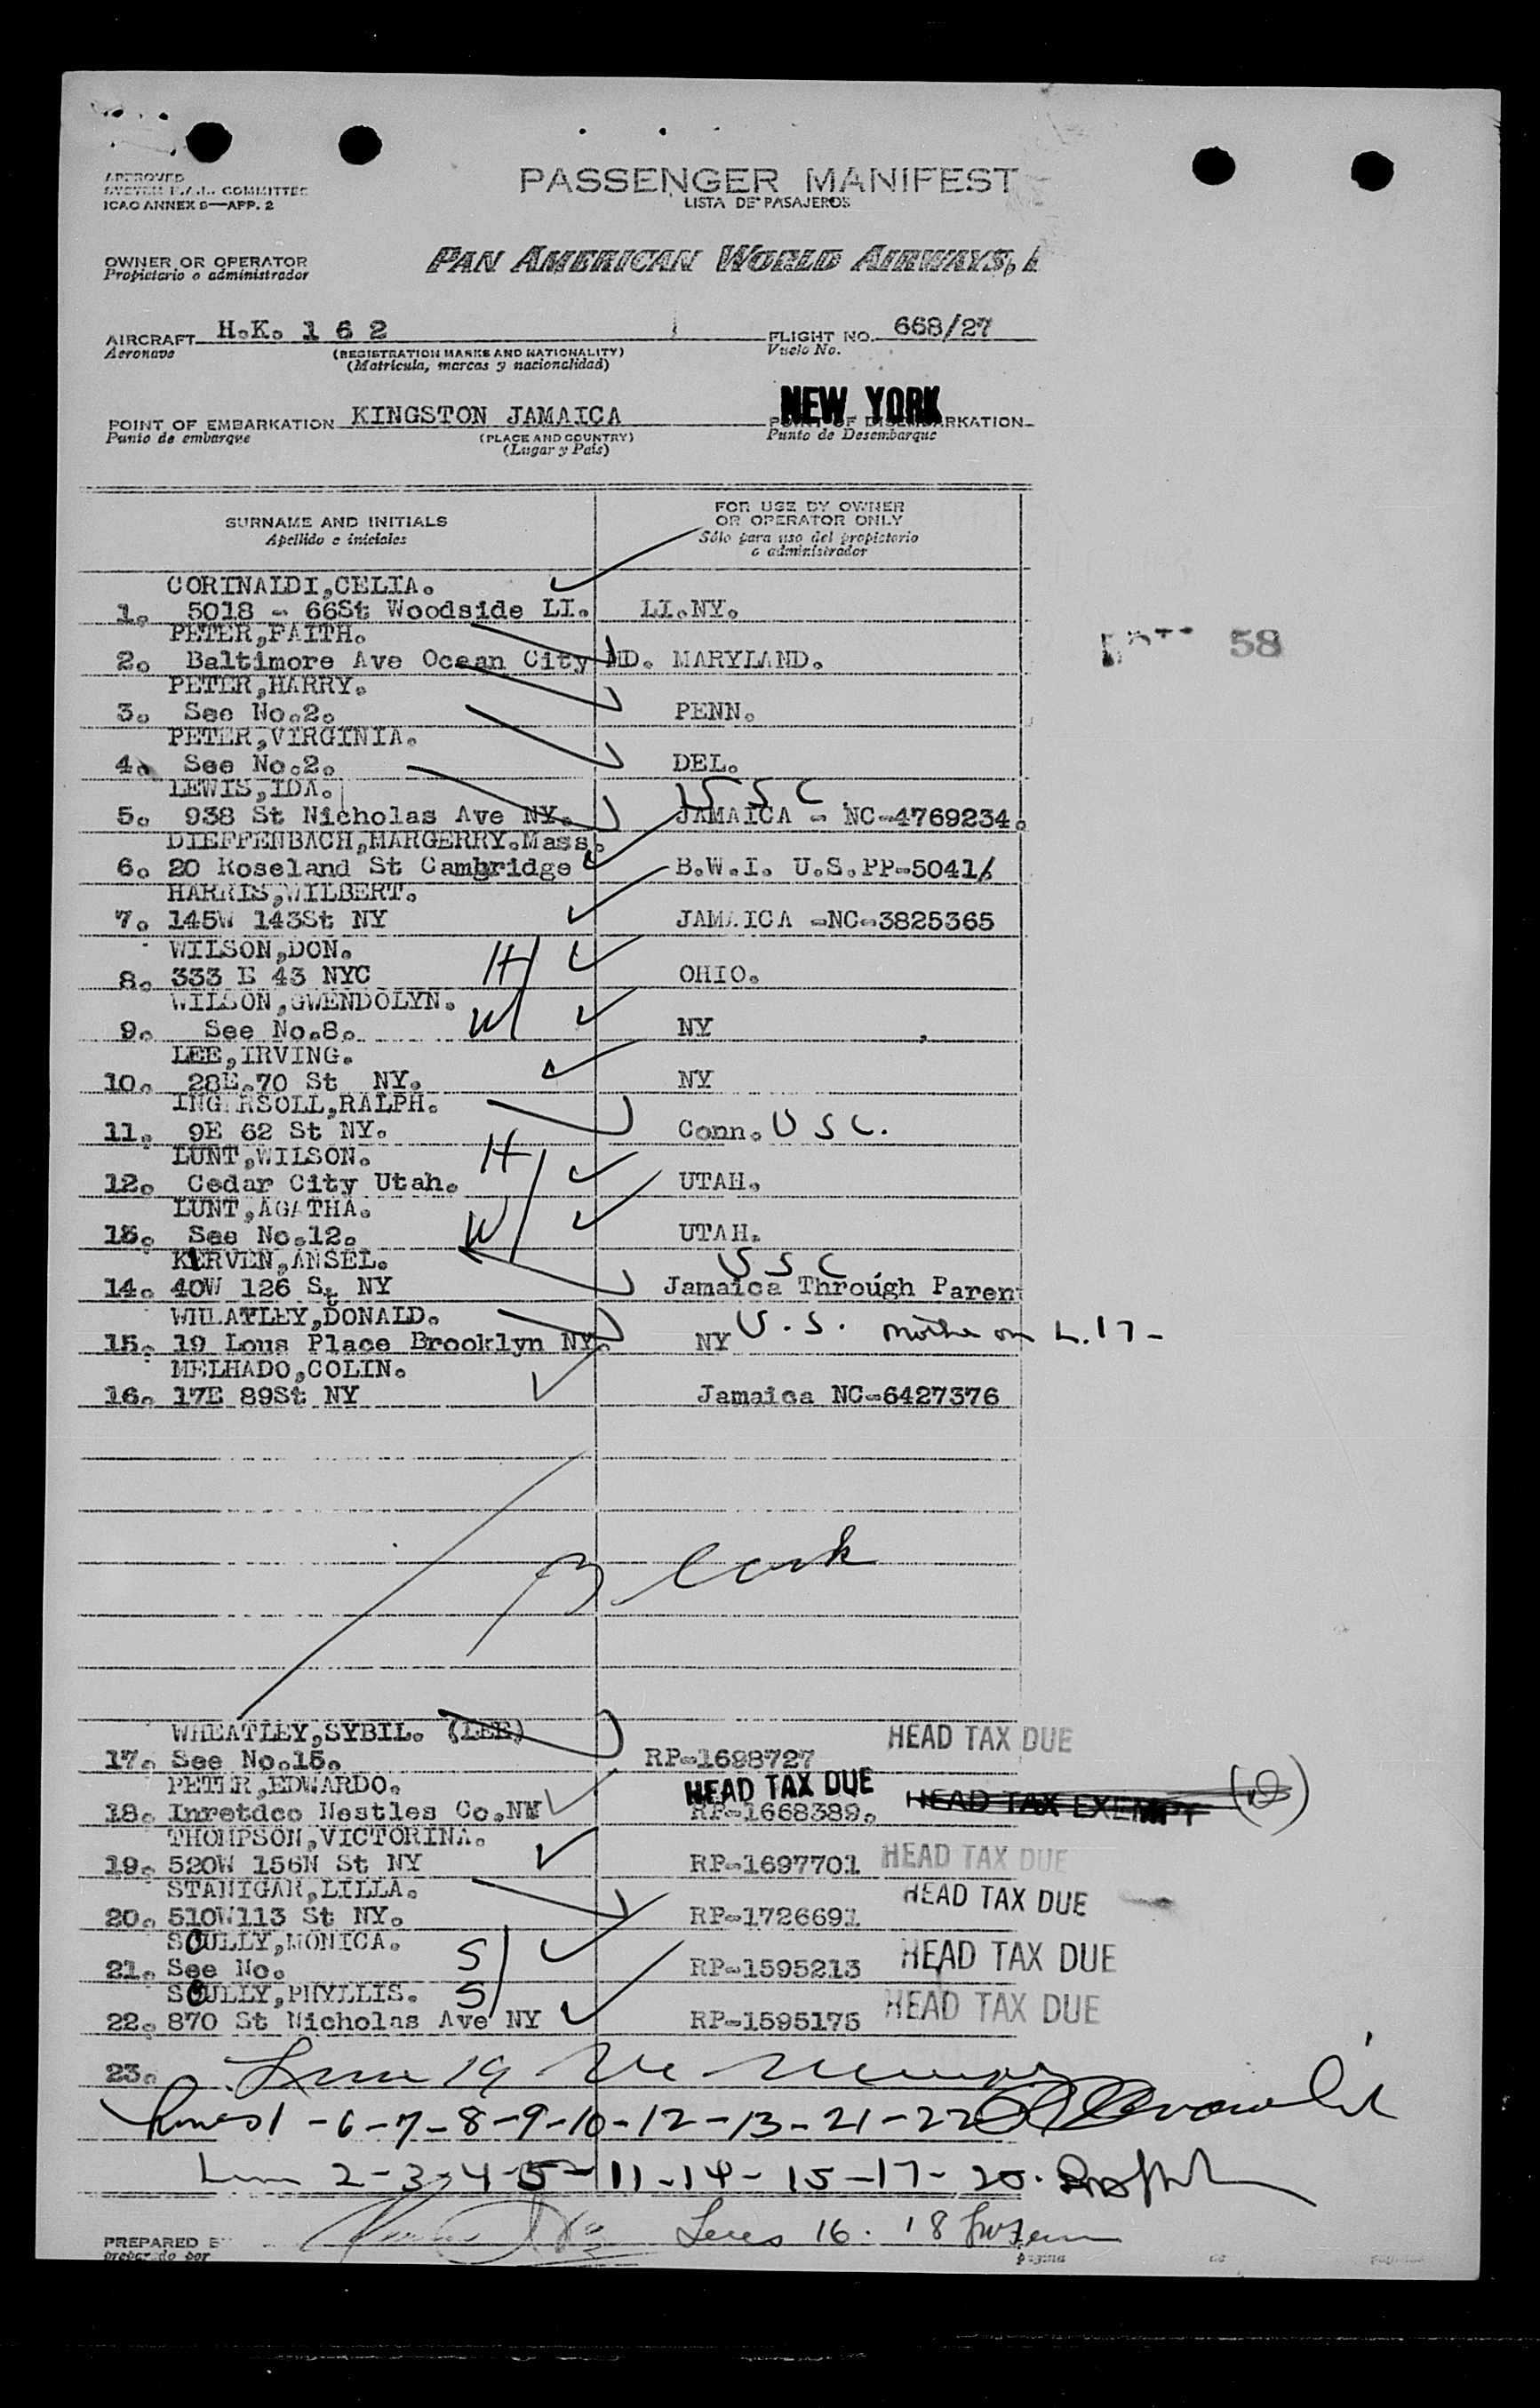 APPROVED
SYSTEM F.A.L. COMMITTEE
ICAO ANNEX 9—APP. 2
PASSENGER MANIFEST
LISTA DE PASAJEROS
OWNER OR OPERATOR
Propietario o administrador
PAN AMERICAN WORLD AIRWAYS,
AIRCRAFT H.K. 1 6 2
Aeronave
(REGISTRATION MARKS AND NATIONALITY)
(Matrícula, marcas y nacionalidad)
FLIGHT NO. 668/27
Vuelo No.
POINT OF EMBARKATION KINGSTON JAMAICA
Punto de embarque
(PLACE AND COUNTRY)
(Lugar y País)
NEW YORK
POINT OF DISEMBARKATION
Punto de Desembarque
SURNAME AND INITIALS
Apellido e iniciales
FOR USE BY OWNER
OR OPERATOR ONLY
Sólo para uso del propietario
o administrador
CORINALDI,CELIA.
1. 5018 - 66St Woodside LI. LI.NY.
PETER,FAITH.
2. Baltimore Ave Ocean City MD. MARYLAND.
58
PETER,HARRY.
3. See No.2. PENN.
PETER,VIRGINIA.
4. See No.2. DEL.
LEWIS,IDA. USC
5. 938 St Nicholas Ave NY. JAMAICA - NC-4769234.
DIEFFENBACH,MARGERRY.Mass.
6. 20 Roseland St Cambridge B.W.I. U.S.PP-5041/
HARRIS,WILBERT.
7. 145W 143St NY JAMAICA -NC-3825365
WILSON,DON. H
8. 333 E 43 NYC OHIO.
WILSON,GWENDOLYN. W
9. See No.8. NY
LEE,IRVING.
10. 28E.70 St NY. NY
INGERSOLL,RALPH.
11. 9E 62 St NY. Conn. USC.
LUNT,WILSON. H
12. Cedar City Utah. UTAH.
LUNT,AGATHA. W
13. See No.12. UTAH.
KERVEN,ANSEL. USC
14. 40W 126 St NY Jamaica Through Paren
WHEATLEY,DONALD. U.S. mother on L.17-
15. 19 Lous Place Brooklyn NY. NY
MELHADO,COLIN.
16. 17E 89St NY Jamaica NC-6427376
Blank
WHEATLEY,SYBIL. (LEE) HEAD TAX DUE
17. See No.15. RP-1698727
PETER,EDWARDO. HEAD TAX DUE HEAD TAX EXEMPT
18. Inretdco Nestles Co.NY RP-1668389.
THOMPSON,VICTORINA.
19. 520W 156N St NY RP-1697701 HEAD TAX DUE
STANIGAR,LILLA. HEAD TAX DUE
20. 510W113 St NY. RP-1726691
SCULLY,MONICA. S HEAD TAX DUE
21. See No. RP-1595213
SCULLY,PHYLLIS. S HEAD TAX DUE
22. 870 St Nicholas Ave NY RP-1595175
23. Line 19
Lines 1-6-7-8-9-10-12-13-21-22
Lines 2-3-4-5-11-14-15-17-20.
PREPARED BY
preparado por
Lines 16. 18
página